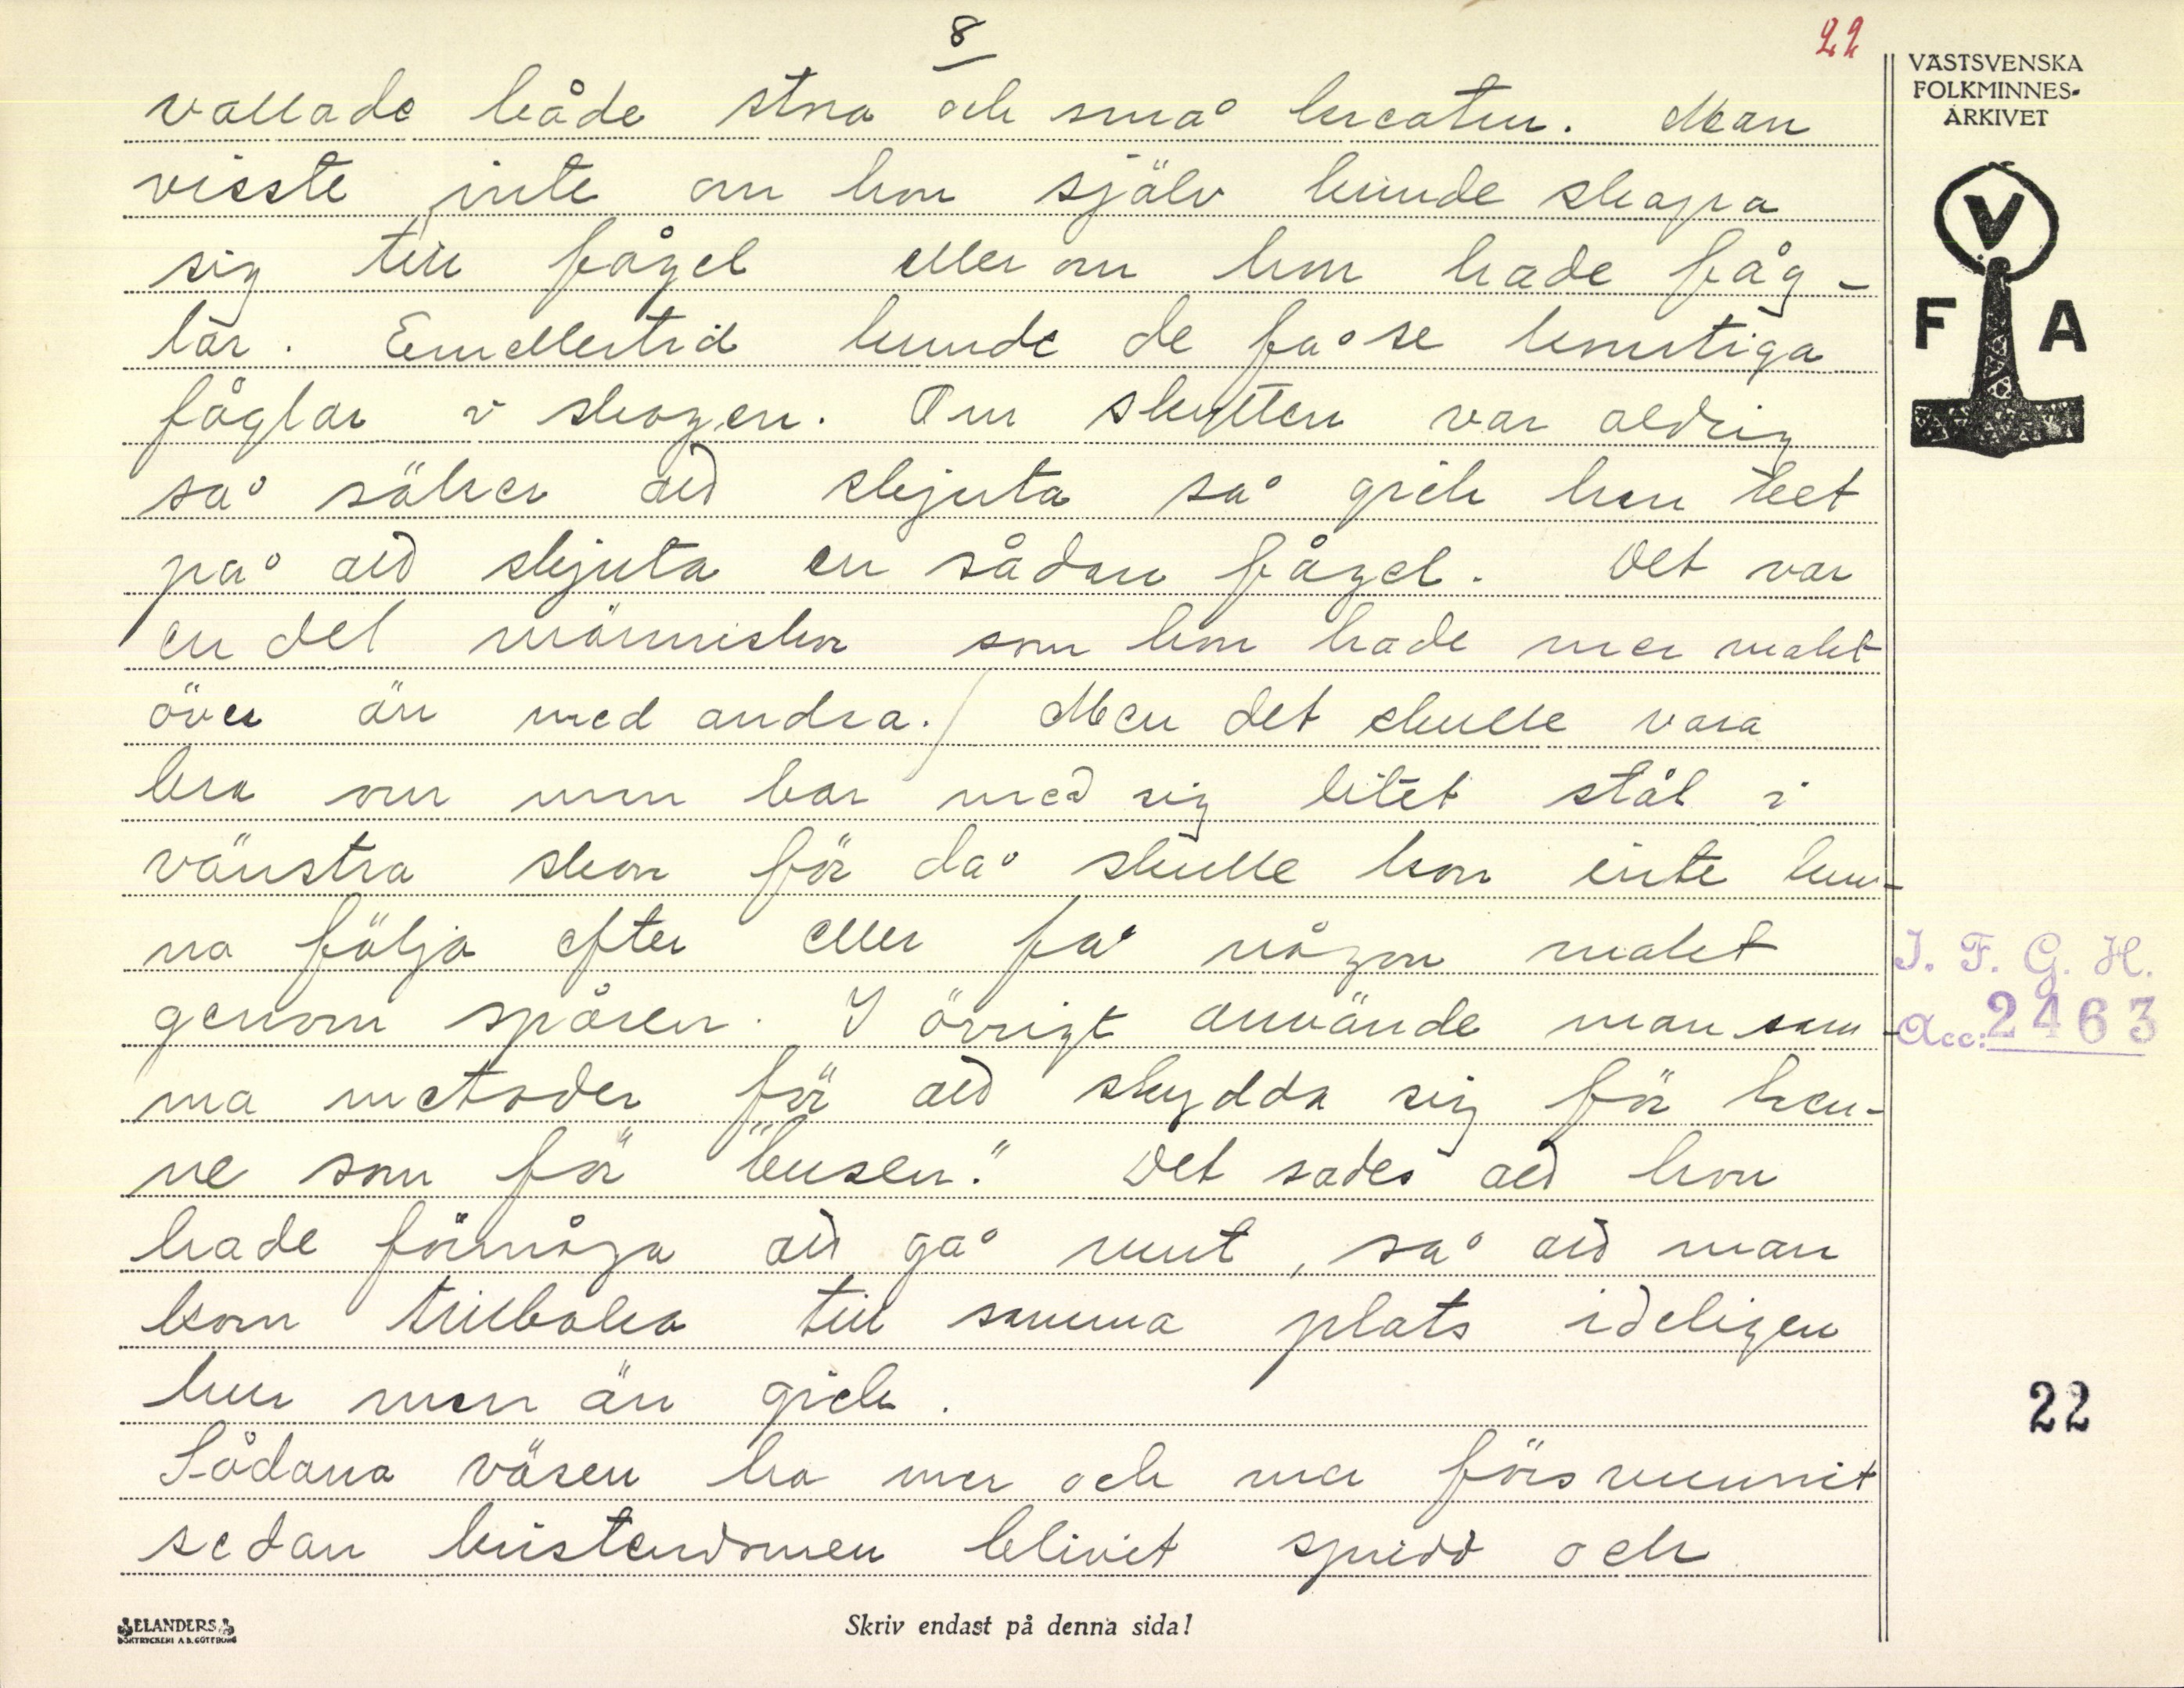 8
22
vallade både stora och små kreatur. Man
visste inte om hon själv kunde skapa
sig till fågel eller om hon hade fåg-
lar. Emellertid kunde de få se konstiga
fåglar i skogen. Om skytten var aldrig
så säker att skjuta så gick han bet
på att skjuta en sådan fågel. Det var
en del människor som hon hade mer makt
över än med andra. / Men det skulle vara
bra om man bar med sig litet stål i
vänstra skon för då skulle hon inte kun-
na följa efter eller få någon makt
genom spåren. I övrigt använde man sam-
ma metoder för att skydda sig för hen-
ne som för "busen." Det sades att hon
hade förmåga att gå runt, så att man
kom tillbaka till samma plats ideligen
hur man än gick.
Sådana väsen ha mer och mer försvunnit
sedan kristendomen blivit spridd och
VÄSTSVENSKA
FOLKMINNES-
ARKIVET
V
F A
I. F. G. H.
Acc: 2463
22
ELANDERS
BOKTRYCKERI A.B. GÖTEBORG
Skriv endast på denna sida!